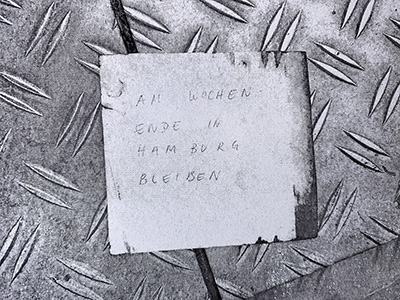 AM WOCHEN
ENDE IN
HAMBURG
BLEIBEN